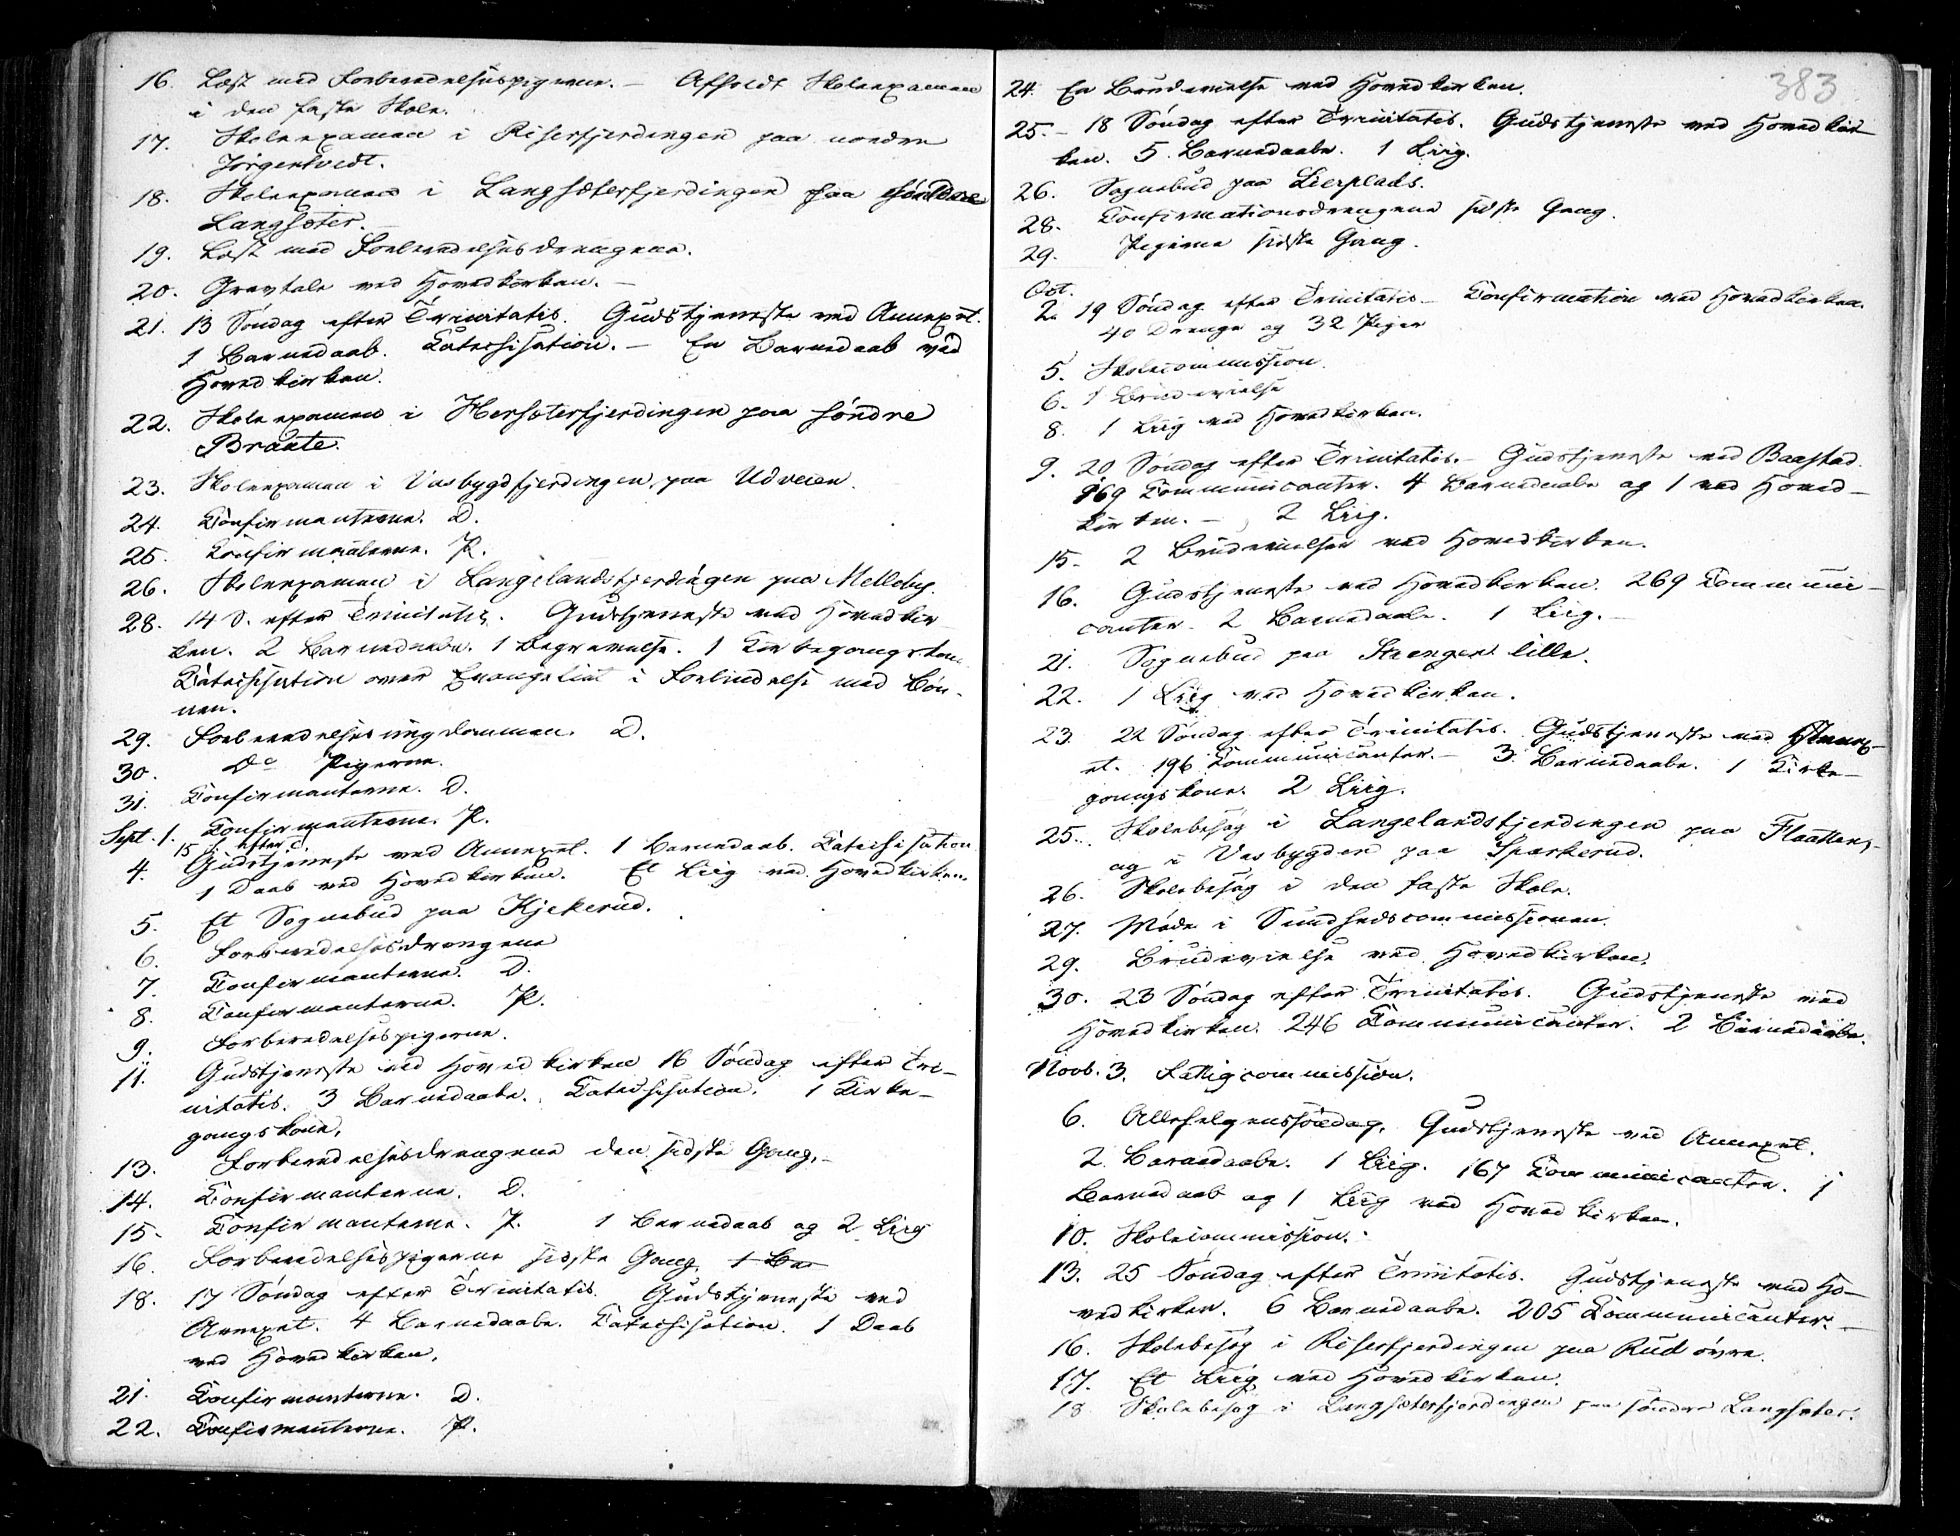 16. Læst med Forberedelsespigerne. – Afholdt Skoleexamen
i den faste Skole.
17. Skoleexamen i Riserfjerdingen paa nordre
Jörgentvedt.
18. Skoleexamen i Langsæterfjerdingen paa
Langsæter.
19. Læst med Forberedelsesdrengene.
20. Gravtale ved Hovedkirken. –
21. 13 Söndag efter Trinitatis. Gudstjeneste ved Annexet.
1 Barnedaab. Katechisation. – En Barnedaab ved
Hovedkirken.
22. Skoleexamen i Hersæterfjerdingen paa söndre
Braate.
23. Skoleexamen i Vasbygdfjerdingen, paa Udveien.
24. Confirmanterne. D.
25. Confirmanterne. P.
26. Skoleexamen i Langelandsfjerdingen paa Mellebye.
28. 14 S. efter Trinitatis. Gudstjeneste ved Hovedkir
ken. 2 Barnedaabe. 1 Begravelse. 1 Kirkegangskone
Katechisation over Evangeliet i Forbindelse med Bön-
nen.
29. Forberedelsesungdommen. D.
30. Do Pigerne.
31. Confirmanterne. D.
Sept. 1. Confirmanterne. P.
15 S. efter T.
4. Gudstjeneste ved Annexet. 1 Barnedaab. Katechisation
1 Daab ved Hovedkirken. Et Liig ved Hovedkirken.
5. Et Sognebud paa Kjekerud.
6. Forberedelsesdrengene
7. Confirmanterne. D.
8. Confirmanterne. P.
9. Forberedelsespigerne.
11. Gudstjeneste ved Hovedkirken 16 Söndag efter Tri-
nitatis. 3 Barnedaabe. Katechisation. 1 Kirke-
gangskone.
13. Forberedelsesdrengene den sidste Gang. –
14. Confirmanterne. D.
15. Confirmanterne. P. 1 Barnedaab og 2 Liig
16. Forberedelsespigerne sidste Gang. 1 Ba
18. 17 Söndag efter Trinitatis. Gudstjeneste ved
Annexet. 4 Barnedaabe. Katechisation. 1 Daab
ved Hovedkirken.
21. Confirmanterne. D.
22. Confirmanterne. P.
383
24. En Brudevielse ved Hovedkirken.
25. – 18 Söndag efter Trinitatis. Gudstjeneste ved Hovedkir
ken. 5 Barnedaabe. 1 Liig.
26. Sognebud paa Lierplads.
28. Confirmationsdrengene sidste Gang.
29. Pigerne sidste Gang.
Oct.
2. 19 Söndag efter Trinitatis – Confirmation ved Hovedkirken.
40 Drenge og 32 Piger
5. Skolecommission.
6. 1 Brudevielse
8. 1 Liig ved Hovedkirken.
9. 20 Söndag efter Trinitatis. – Gudstjeneste ved Baastad.
169 Communicanter. 4 Barnedaabe og 1 ved Hoved-
kirken. – 2 Liig.
15. 2 Brudevielser ved Hovedkirken.
16. Gudstjeneste ved Hovedkirken. 269 Communi-
canter. 2 Barnedaabe. 1 Liig. –
21. Sognebud paa Strengen lille.
22. 1 Liig ved Hovedkirken.
23. 22 Söndag efter Trinitatis. Gudstjeneste ved Annex-
et. 196 Communicanter. – 3 Barnedaabe. 1 Kirke-
gangskone. 2 Liig.
25. Skolebesög i Langelandsfjerdingen paa
og i Vasbygden paa Sparkerud.
26. Skolebesög i den faste Skole.
27. Möde i Sundhedscommissionen.
29. Brudevielse ved Hovedkirken.
30. 23 Söndag efter Trinitatis. Gudstjeneste ved
Hovedkirken. 246 Communicanter. 2 Barnedaabe.
Novb. 3. Fattigcommission.
6. Allehelgenssöndag. Gudstjeneste ved Annexet.
2 Barnedaabe. 1 Liig. 167 Communicanter. 1
Barnedaab og 1 Liig ved Hovedkirken.
10. Skolecommission.
13. 25 Söndag efter Trinitatis. Gudstjeneste ved Ho-
vedkirken. 6 Barnedaabe. 205 Communicanter. –
16. Skolebesög i Riserfjerdingen paa Rud övre.
17. Et Liig ved Hovedkirken.
18 Skolebesög i Langsæterfjerdingen paa söndre Langsæter.